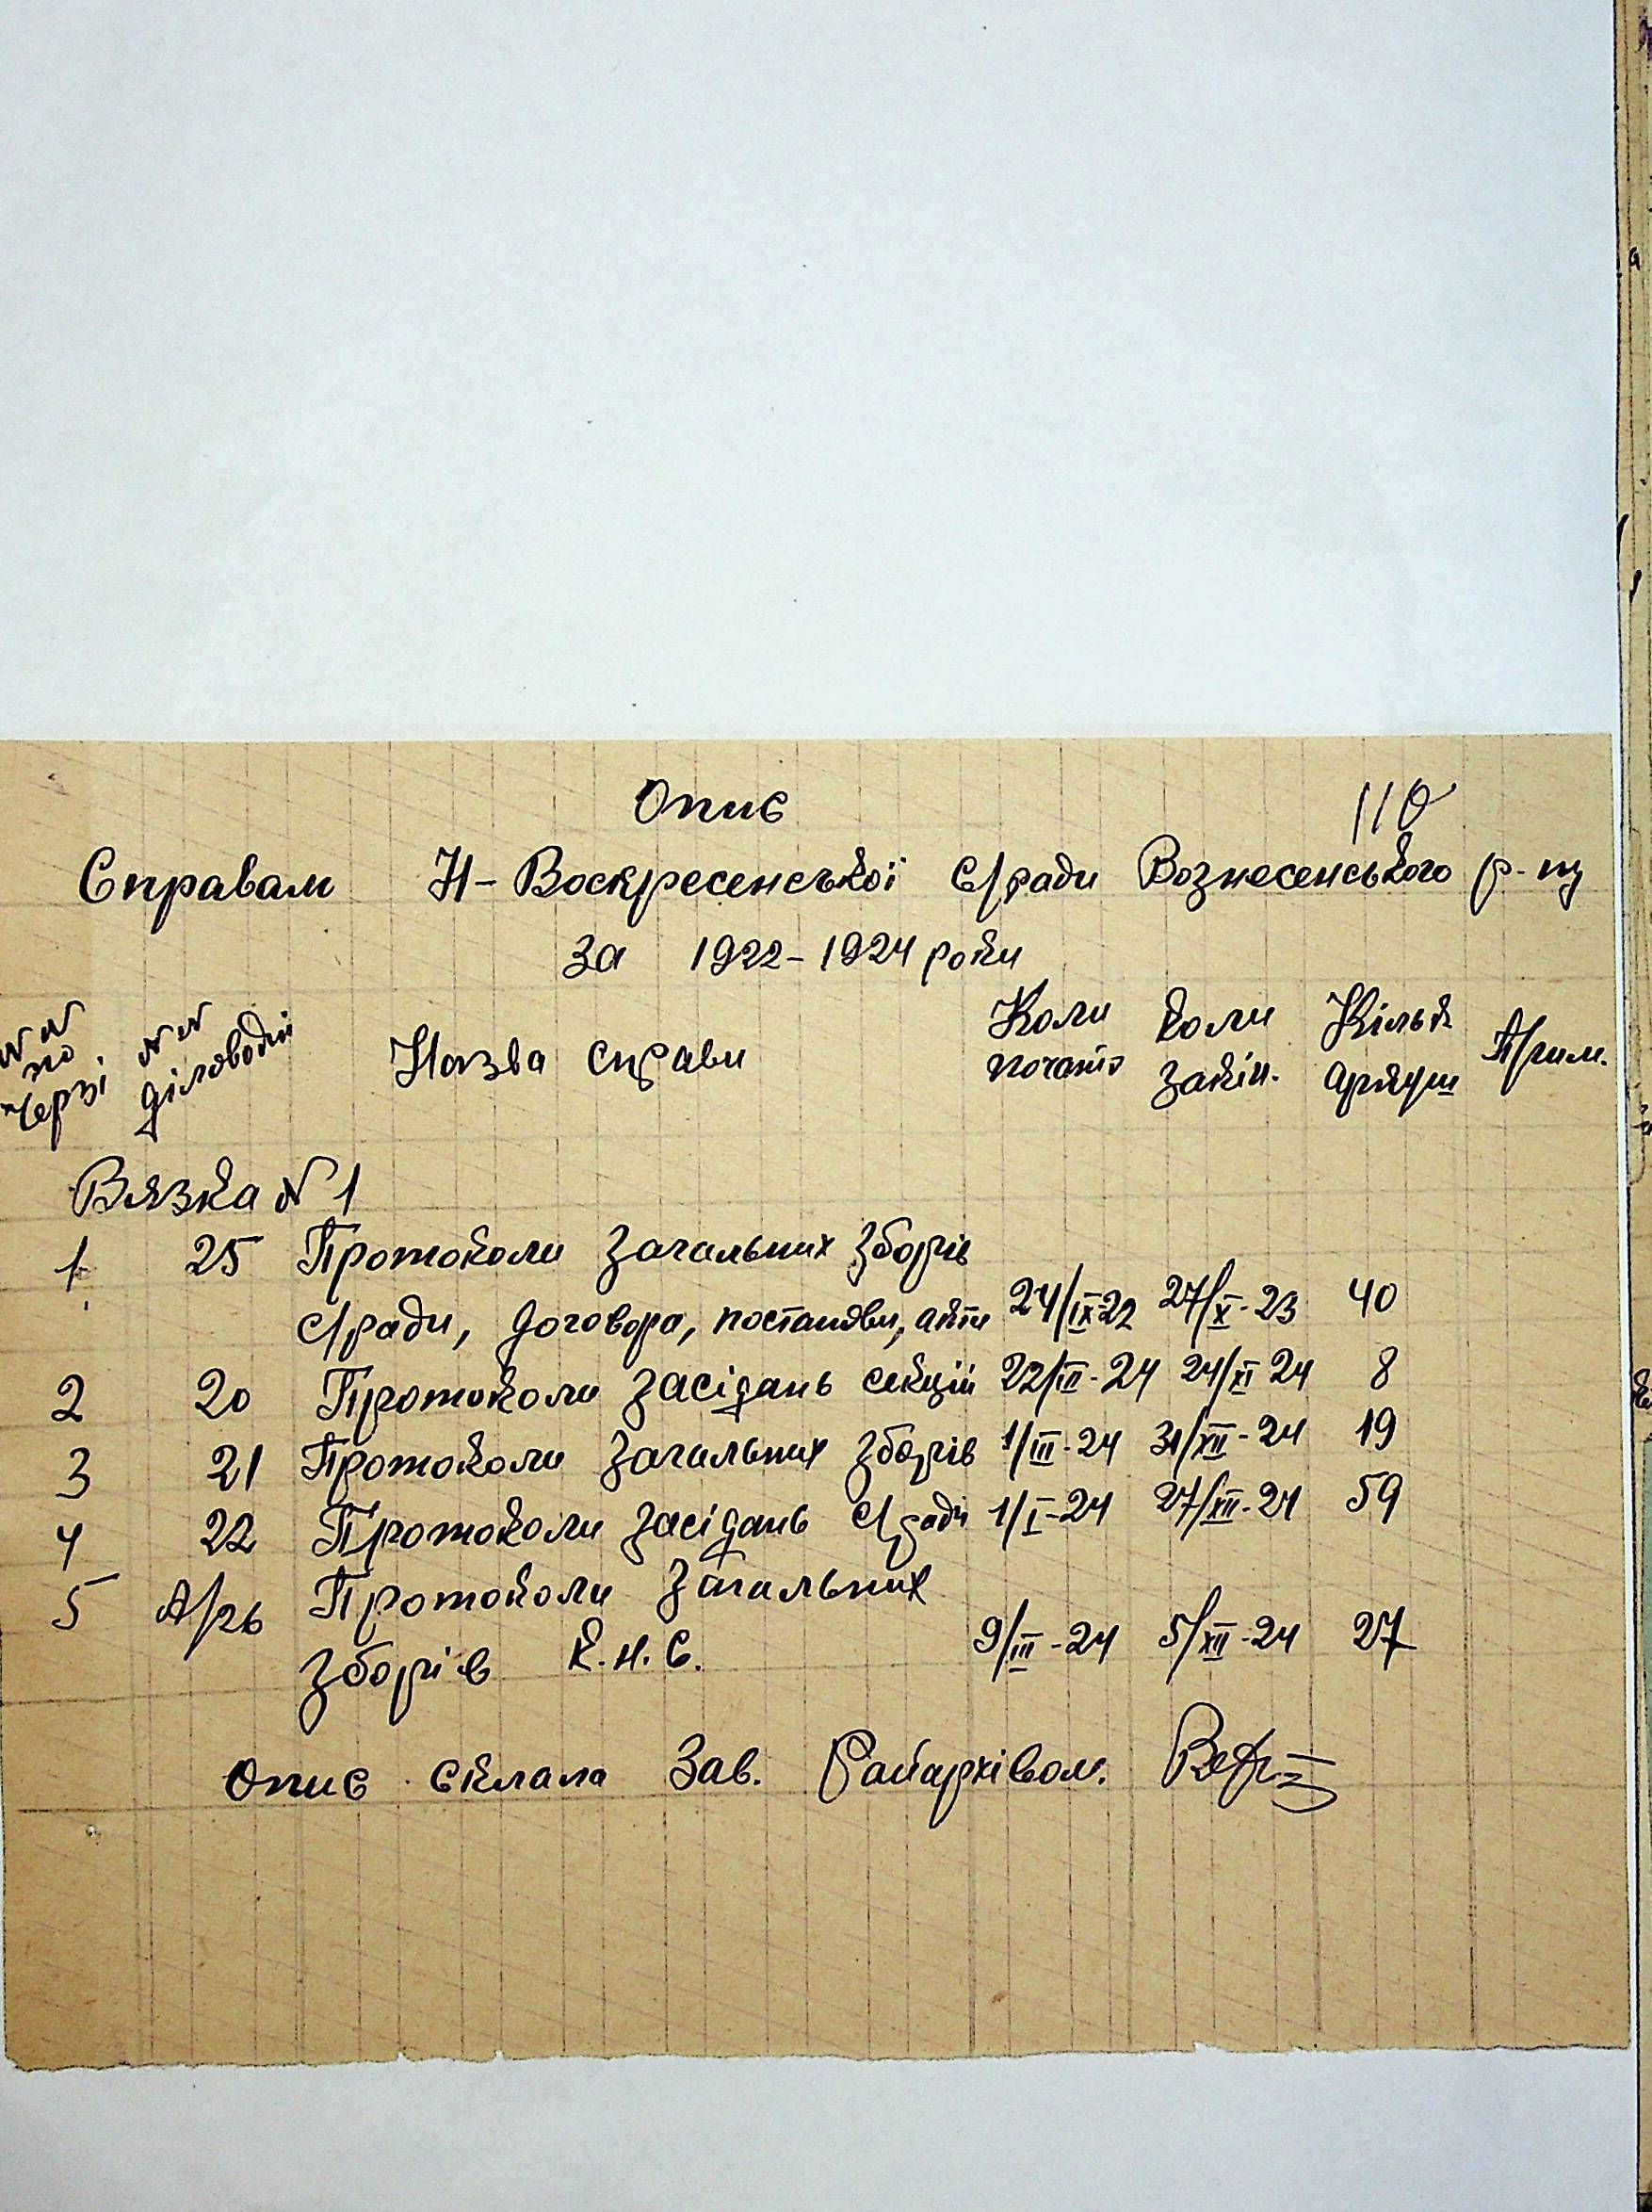 Опис 110
Справам Н-Воскресенської с/ради Вознесенського р-ну
за 1922-1924 роки
NN по черзі. NN діловодні Назва справи Коли почато Коли закін. Кільк. аркуш Прим.
Вязка N 1
1 25 Протоколи загальних зборів
с/ради, договора, постанови, акти 24/IX-22 27/X-23 40
2 20 Протоколи засідань секцій 22/III-24 24/XI-24 8
3 21 Протоколи загальних зборів 1/III-24 31/XII-24 19
4 22 Протоколи засідань с/ради 1/I-24 27/XII-24 59
5 26 Протоколи загальних
зборів К.Н.С. 9/III-24 5/XII-24 27
Опис склала Зав. Райархівом.